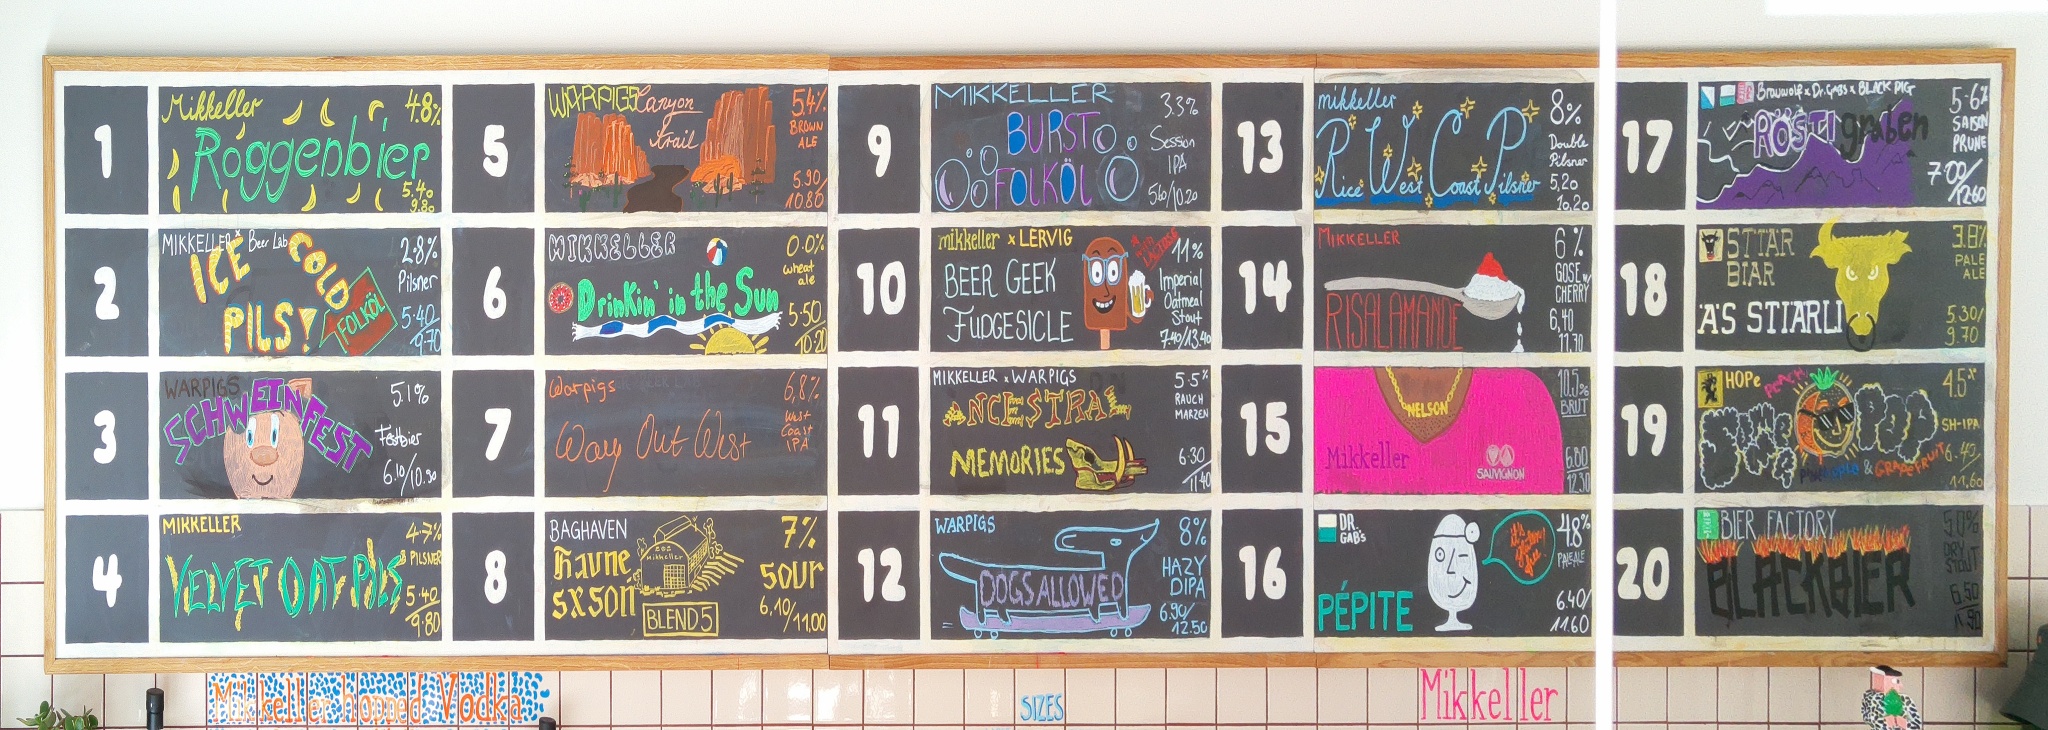 1
Mikkeller 4.8%
Roggenbier
5.40
9.80
2
MIKKELLER x Beer Lab 2.8%
ICE COLD
PILS!
FOLKÖL
Pilsner
5.40/
9.70
3
WARPIGS 5.1%
SCHWEINFEST
Festbier
6.10/10.90
4
MIKKELLER 4.7%
VELVET OAT PILS
PILSNER
5.40/
9.80
5
WARPIGS Canyon
trail
5.4%
BROWN
ALE
5.90
10.80
6
MIKKELLER 0.0%
Drinkin' in the Sun
wheat
ale
5.50
10.20
7
Warpigs 6,8%
Way Out West
West
Coast
IPA
8
BAGHAVEN 7%
Havne
sæson
BLEND 5
Mikkeller
sour
6.10/11.00
9
MIKKELLER 3.3%
BURST
FOLKÖL
Session
IPA
5.60/10.20
10
mikkeller x LERVIG 11%
BEER GEEK
FUDGESICLE
Imperial
Oatmeal
Stout
7.40/13.40
11
MIKKELLER x WARPIGS 5.5%
ANCESTRAL
MEMORIES
RAUCH
MARZEN
6.30/
11.40
12
WARPIGS 8%
DOGS ALLOWED
HAZY
DIPA
6.90/
12.50
13
mikkeller 8%
RWCP
Rice West Coast Pilsner
Double
Pilsner
5,20
10,20
14
MIKKELLER 6%
RISALAMANDE
GOSE w/
CHERRY
6,40
11,30
15
10.5%
BRUT
NELSON
Mikkeller
SAUVIGNON
6.80
12.30
16
DR.
GAB'S
4.8%
PALE ALE
PÉPITE
6.40/
11.60
17
Brauwolf x Dr. Gabs x BLACK PIG 5.6%
RÖSTIgraben
SAISON
PRUNE
7.00/
12.60
18
STIÄR
BIÄR
3.8%
PALE
ALE
Ä'S STIÄRLI
5.30/
9.70
19
HOPe
PEACH
4.5%
POP
& GRAPEFRUIT
6.40/
11.60
20
BIER FACTORY 5.0%
BLACKBIER
DRY
STOUT
6.50
11.90
Mikkeller hopped Vodka
SIZES
Mikkeller